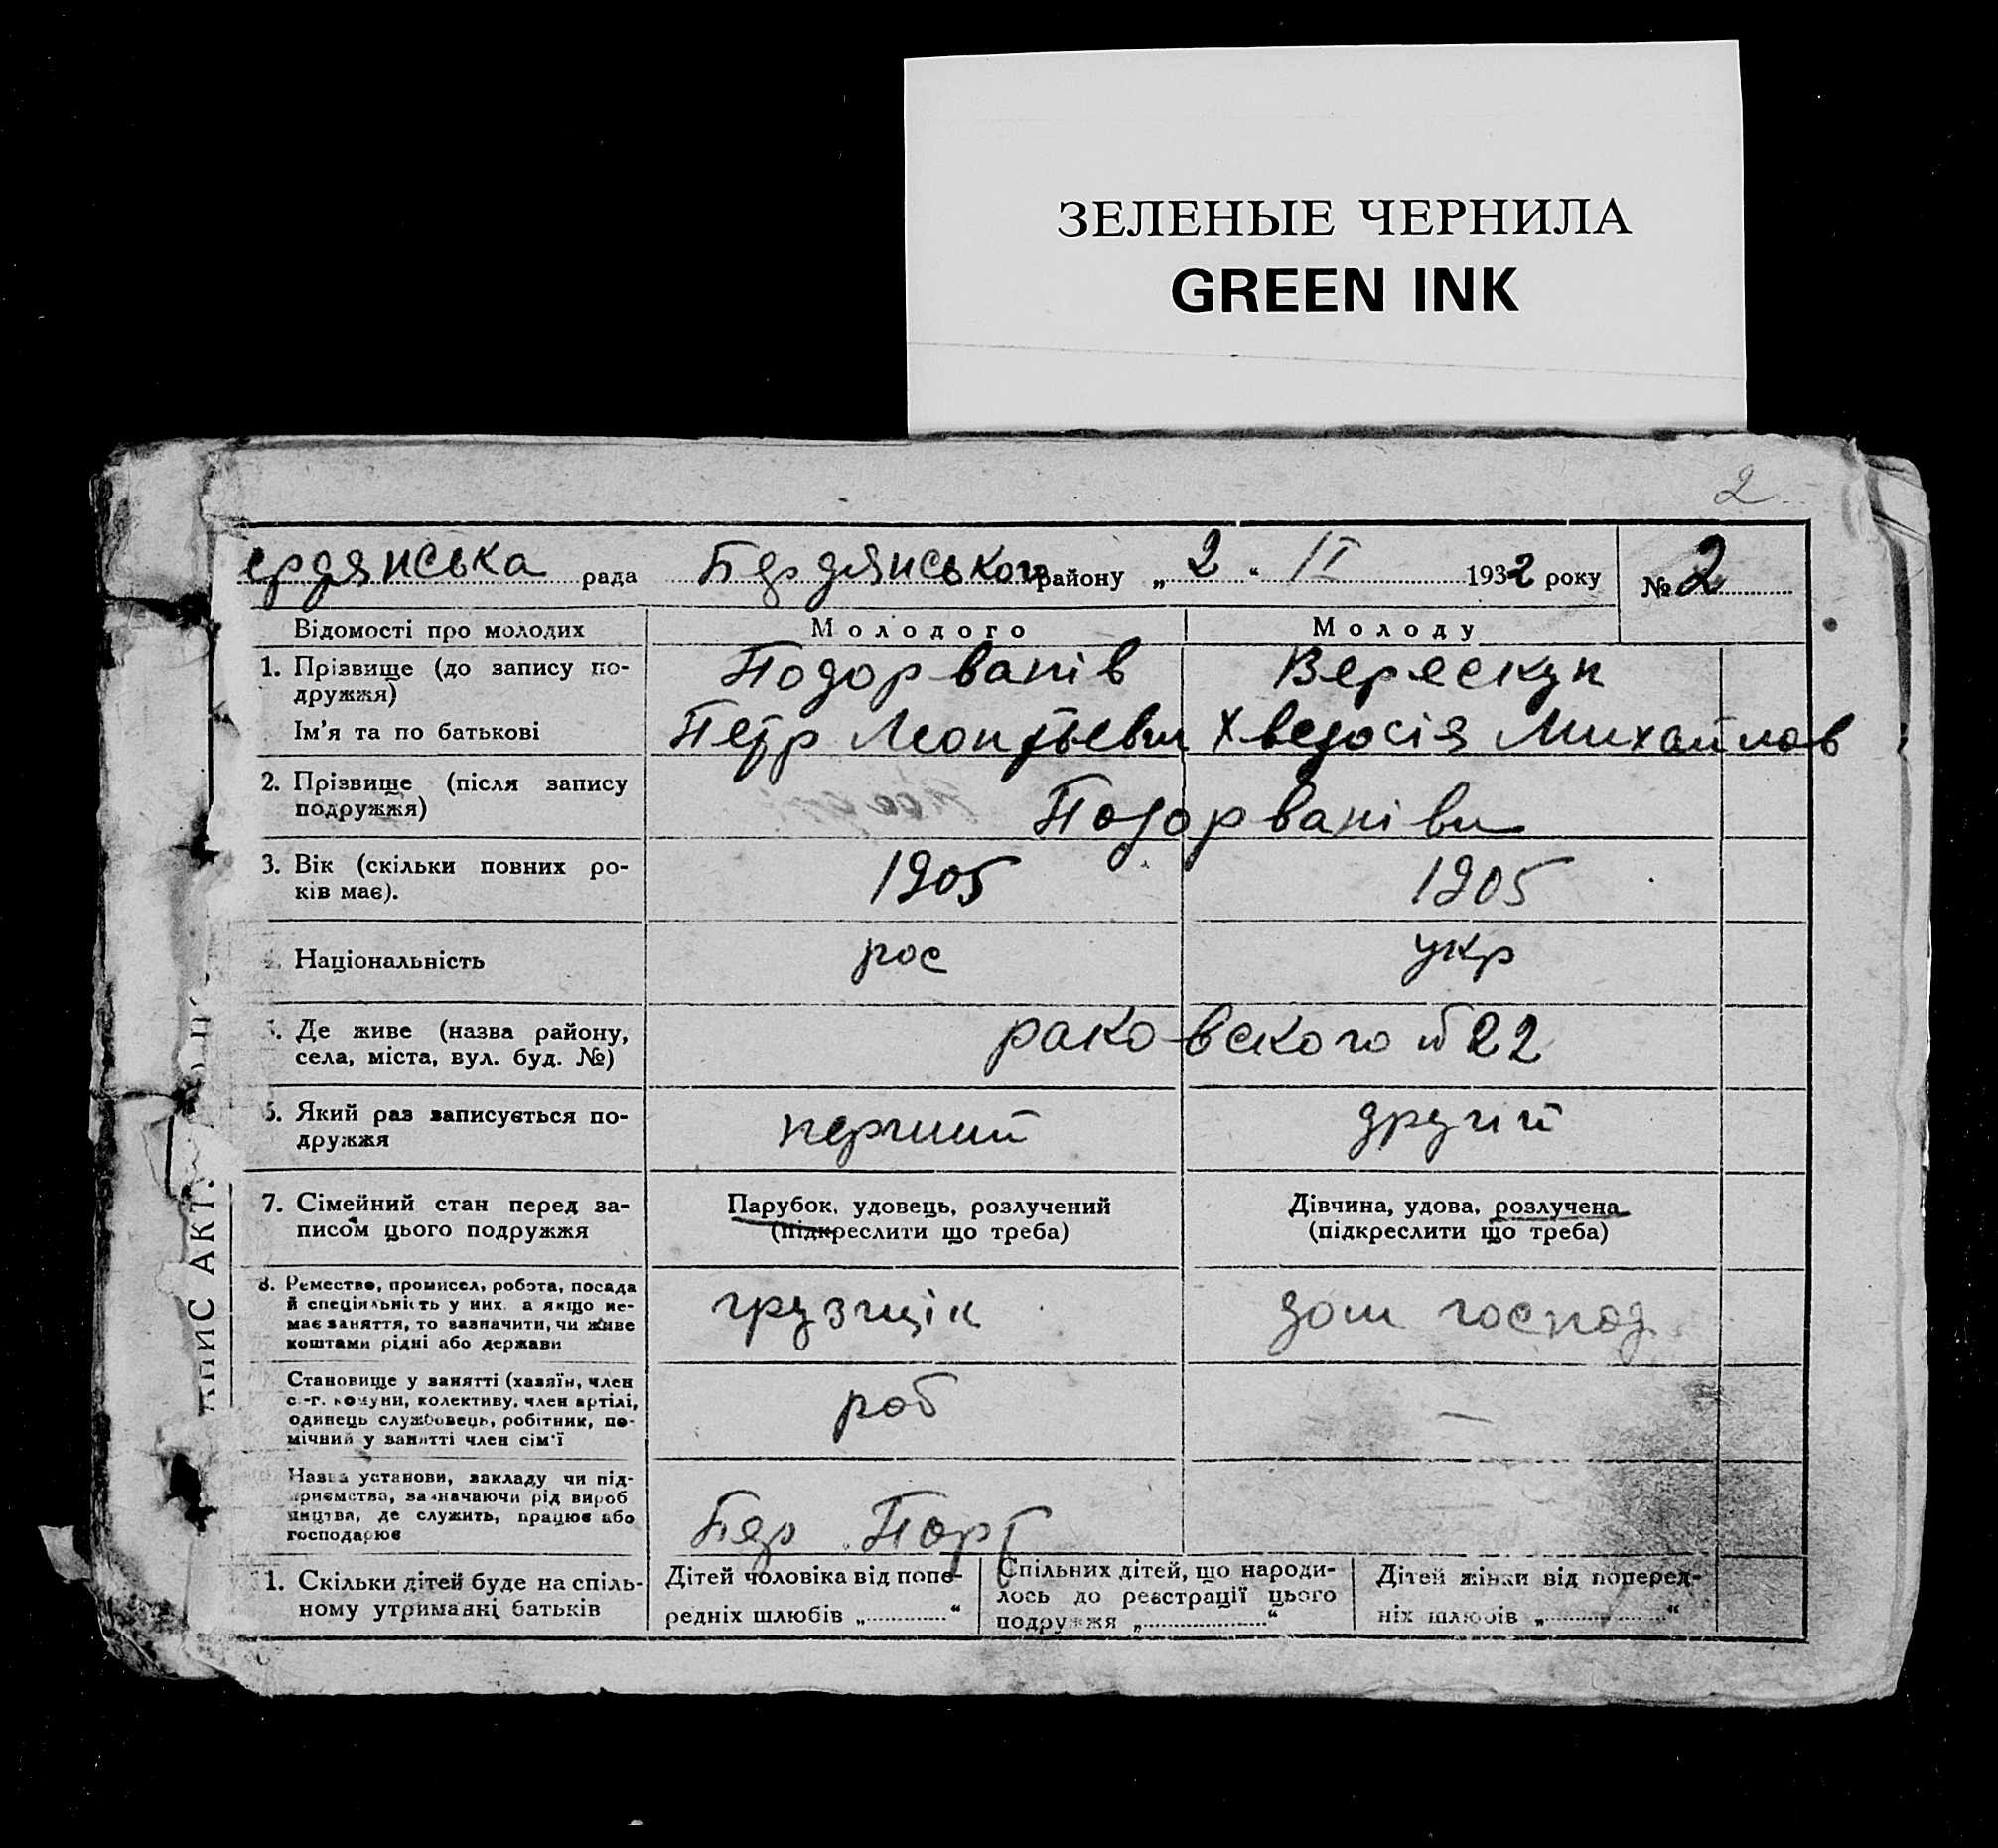 ЗЕЛЕНЫЕ ЧЕРНИЛА
GREEN INK
2
ердянська рада Бердянського району „ 2 “ II 1932 року № 2
Відомості про молодих Молодого Молоду
1. Прізвище (до запису по-
дружжя) Подорванів Верескун
Ім'я та по батькові Петр Леонтьевич Хведосія Михайлов
2. Прізвище (після запису
подружжя) Подорваніви
3. Вік (скільки повних ро-
ків має). 1905 1905
Національність рос укр
Де живе (назва району,
села, міста, вул. буд. №) раковского 22
6. Який раз записується по-
дружжя перший другий
7. Сімейний стан перед за-
писом цього подружжя
Парубок, удовець, розлучений
(підкреслити що треба)
Дівчина, удова, розлучена
(підкреслити що треба)
8. Ремество, промисел, робота, посада
й спеціяльність у них, а якщо не-
має заняття, то зазначити, чи живе
коштами рідні або держави
грузщік дом господ
Становище у занятті (хазяїн, член
с.-г. комуни, колективу, член артілі,
одинець службовець, робітник, по-
мічний у занятті член сім'ї
роб —
Назва установи, закладу чи під-
приємства, зазначаючи рід вироб
ництва, де служить, працює або
господарює
Бер Порт
1. Скільки дітей буде на спіль-
ному утриманні батьків
Дітей чоловіка від попе-
редніх шлюбів „ “
Спільних дітей, що народи-
лось до реєстрації цього
подружжя „ “
Дітей жінки від поперед-
ніх шлюбів „ “
АПИС АКТ